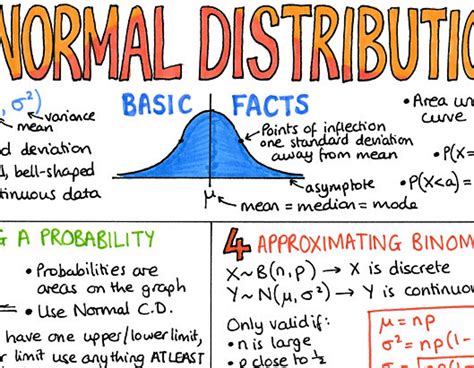 NORMAL DISTRIBUTIO
BASIC FACTS
, σ²)
variance
mean
d deviation
, bell-shaped
tinuous data
Points of inflection
one standard deviation
away from mean
asymptote
μ
mean = median = mode
• Area un
curve
• P(X=
• P(X<a) =
G A PROBABILITY
• Probabilities are
areas on the graph
• Use Normal C.D.
have one upper/lower limit,
r limit use anything AT LEAST
4 APPROXIMATING BINOM
X~B(n,p) → X is discrete
Y~N(μ, σ²) → Y is continuou
Only valid if:
• n is large
• p close to ½
μ = np
σ² = np(1-
np(1-